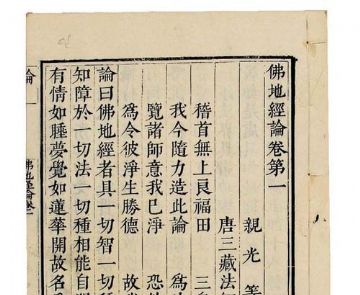 佛地經論卷第一
親光等
唐三藏法
稽首無上良福田 三
我今隨力造此論 為
覽諸師意我已淨 恐
為令彼淨生勝德 故
論曰佛地經者具一切智一切種
知障於一切法一切種相能自
有情如睡夢覺如蓮華開故名
論
佛地經論卷一